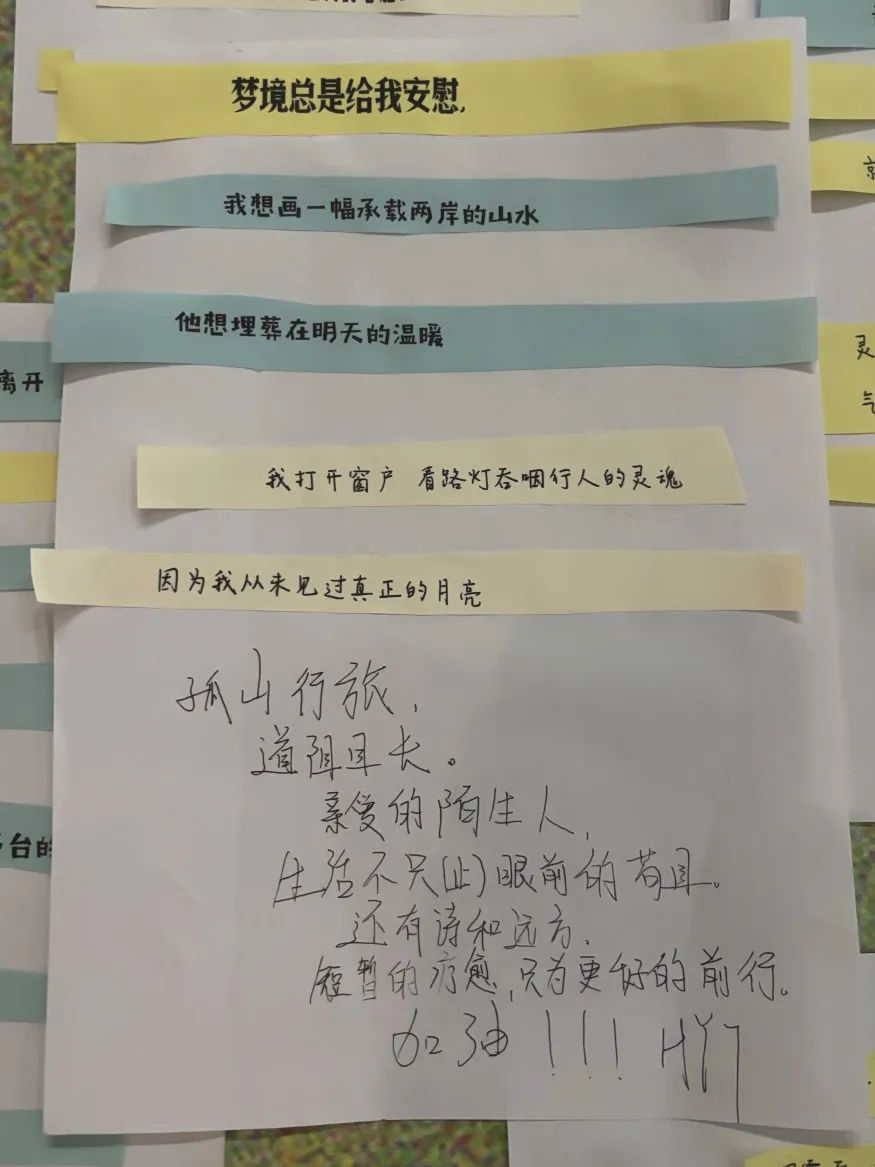 梦境总是给我安慰,
我想画一幅承载两岸的山水
他想埋葬在明天的温暖
离开
我打开窗户 看路灯吞咽行人的灵魂
因为我从未见过真正的月亮
孤山行旅,
道阻且长。
亲爱的陌生人,
生活不只(止)眼前的苟且。
台的
还有诗和远方,
短暂的疗愈,只为更好的前行。
加油!!!
灵
气